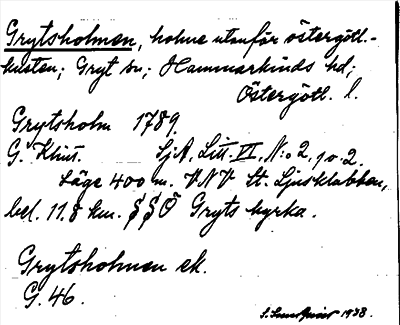 Grytsholmen, holme utanför östergötl.-
kusten; Gryt sn; Hammarkinds hd;
Östergötl. l.
Grytsholm 1789.
G. Klint. SjA, Litt. VI, N:o 2, 1 o. 2.
Läge 400 m. VNV St. Ljusklabben,
bel. 11.8 km. SSÖ Gryts kyrka.
Grytsholmen ek.
G. 46.
1938.